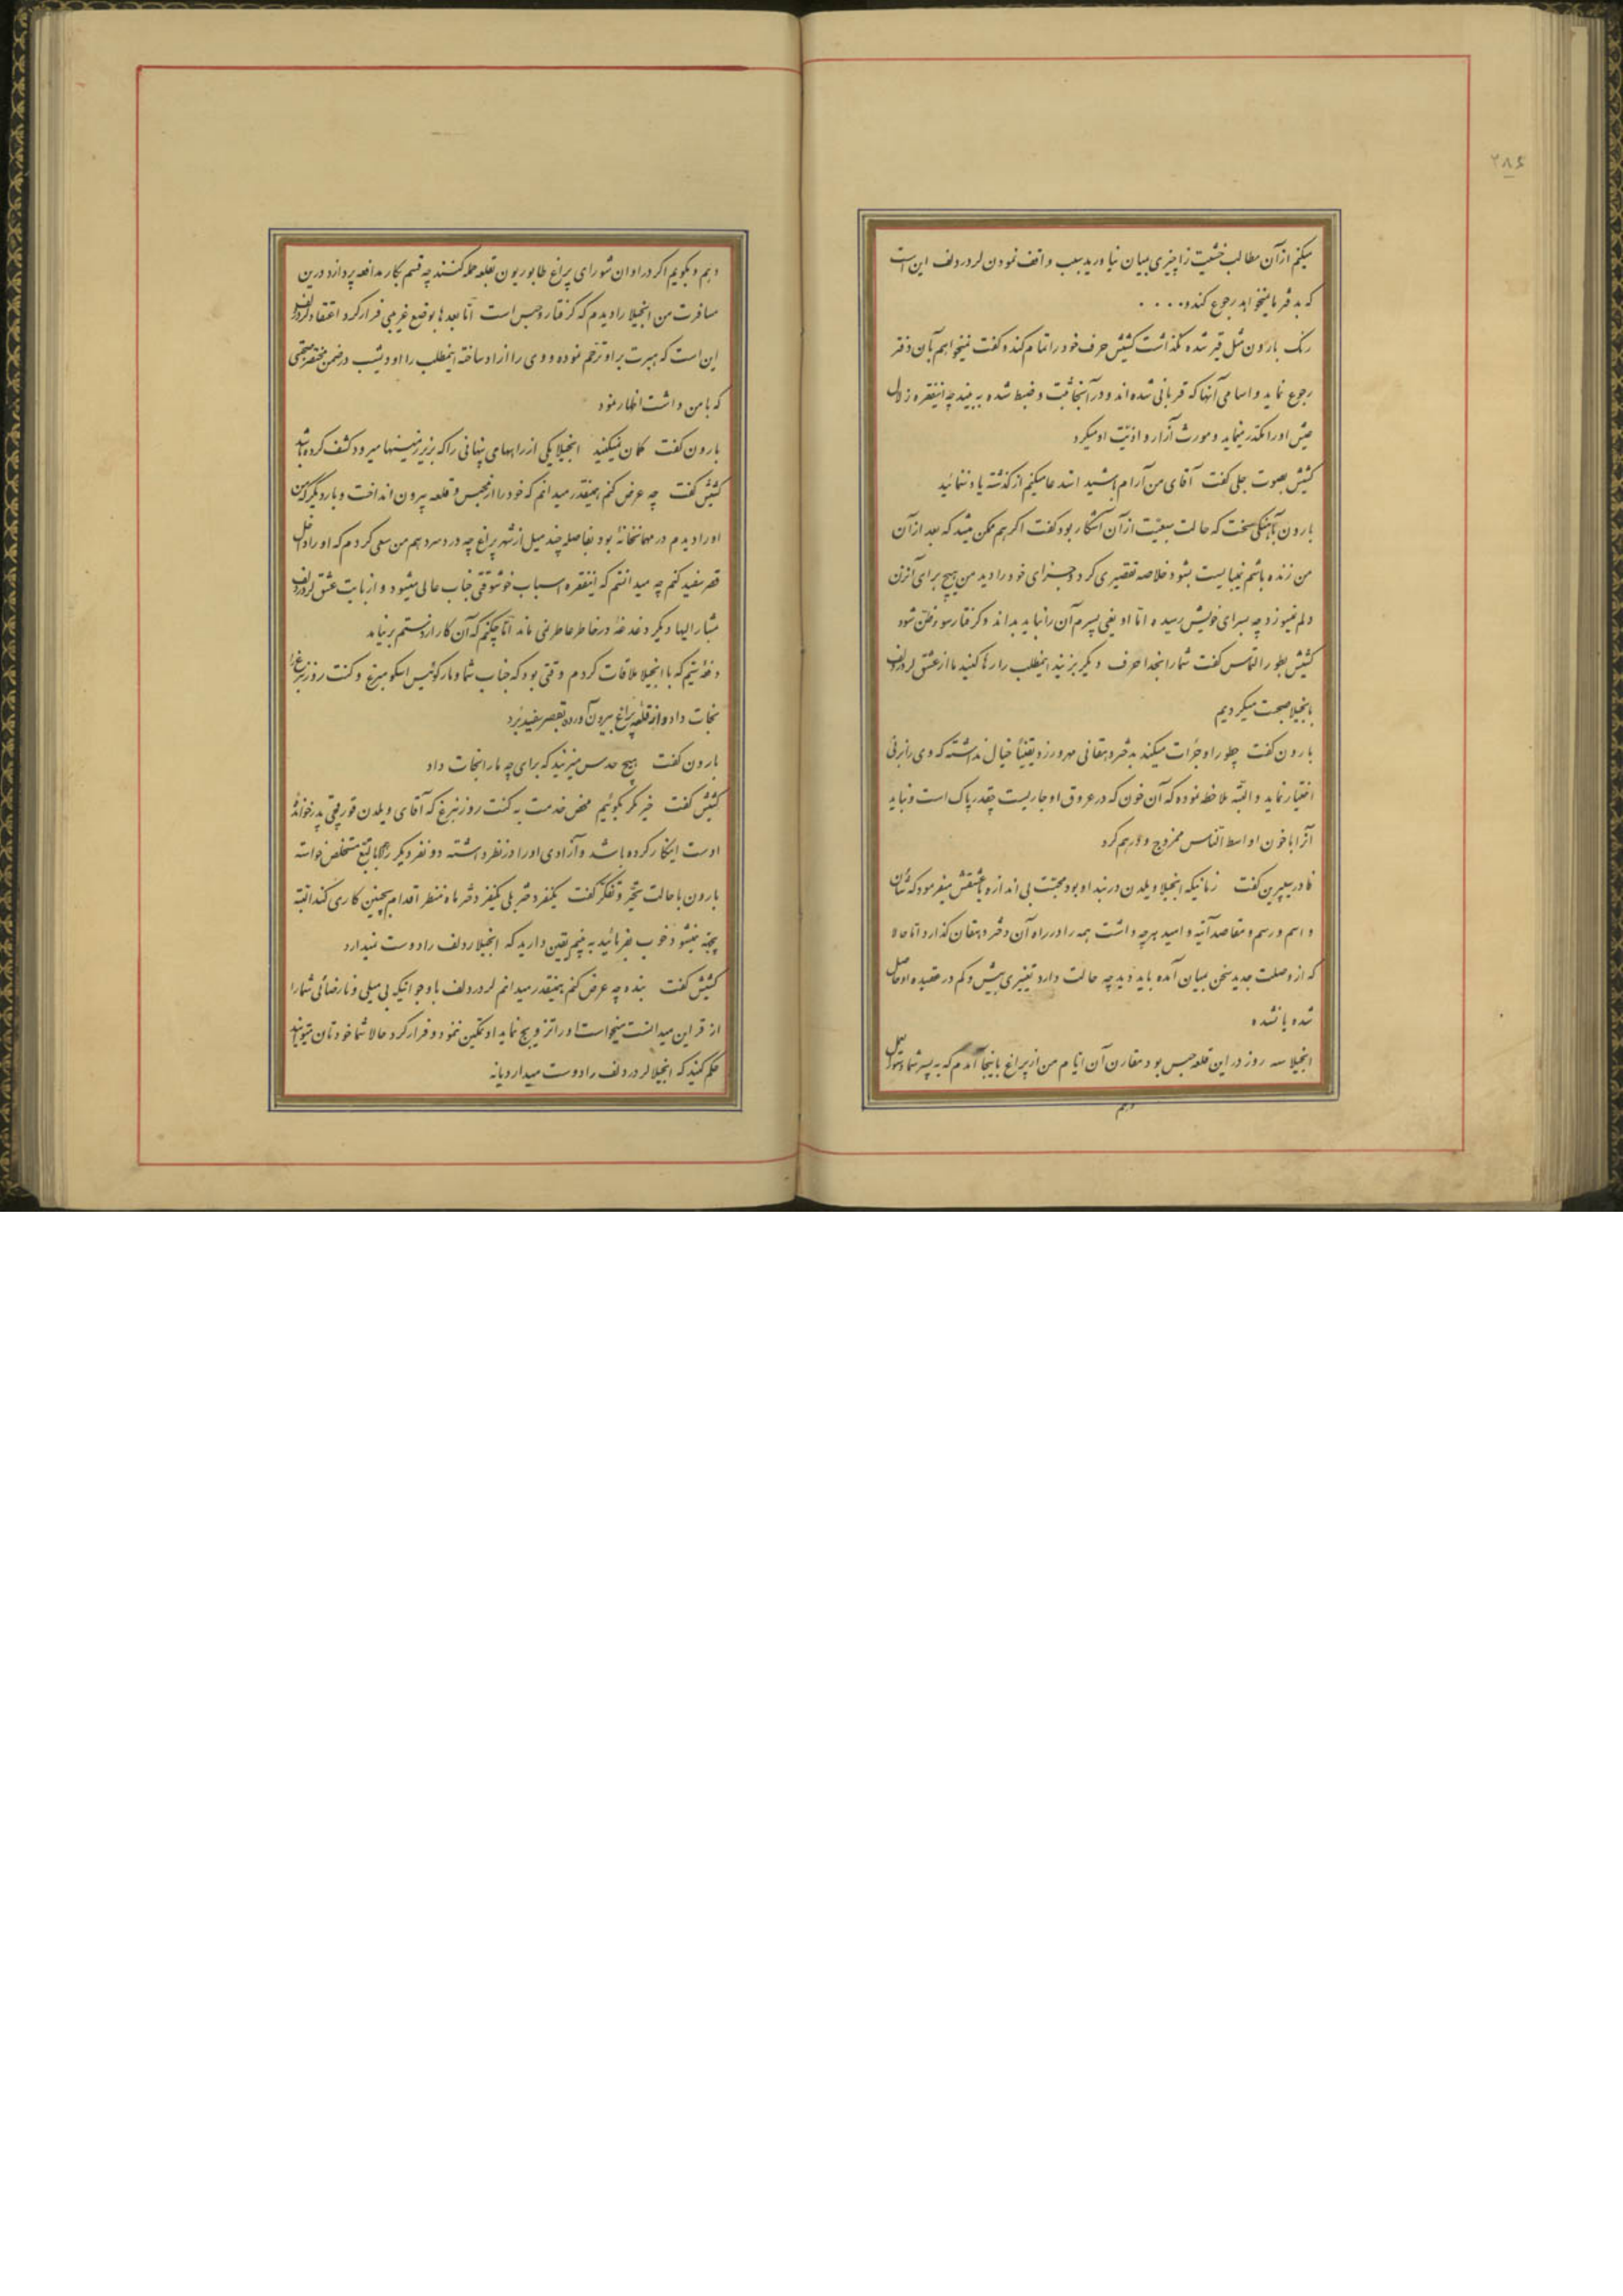 ۲۸۶
میکنم ازآن مطالب خشیت زا چیزی بمیان نیاورید سبب واقف نمودن لردردلف این است
که بدفتر ما میخواهد رجوع کند و . . . .
رنک بارون مثل قیر شده نگذاشت کشیش حرف خود را تمام کند و گفت نمیخواهم بآن دفتر
رجوع نماید و اسامی آنها که قربانی شده اند و در آنجا ثبت و ضبط شده به بیند چه اینفقره زلال
عیش او را مکدر مینماید و مورث آزار و اذیّت او میکرد
کشیش بصوت جلی گفت آقای من آرام باشید استدعا میکنم از گذشته یاد ننمائید
بارون بآهنگی سخت که حالت سبعیّت از آن آشکار بود گفت اگر هم ممکن میشد که بعد از آن
من زنده باشم نمیبایست بشود خلاصه تقصیری کرد و جزای خود را دید من هیچ برای آنزن
دلم نمیسوزد چه بسزای خویش رسیده امّا او یعنی پسرم آن را نباید بداند و گرفتار سوء ظن شود
کشیش بطور التماس گفت شما را بخدا حرف دیگر بزنید اینمطلب را رها کنید ما از عشق لردردلف
بانجیلا صحبت میکردیم
بارون گفت چطور او جرأت میکند بدختر دهقانی مهر ورزد یقیناً خیال نداشته که وی را بزنی
اختیار نماید و البته ملاحظه نموده که آن خون که در عروق او جاریست چقدر پاک است و نباید
آنرا با خون اواسط النّاس ممزوج و درهم کرد
فادر سیپرین گفت زمانیکه انجیلا ویلدن در بند او بود محبّت بی اندازه باو میفرمود که شأن
و اسم و رسم و مقاصد آتیه و امید هرچه داشت همه را در راه آن دختر دهقان گذارد امّا حالا
که از وصلت جدید سخن بمیان آمده باید دید چه حالت دارد تغییری بیش و کم در عقیده او حاصل
شده یا نشده
انجیلا سه روز در این قلعه حبس بود مقارن آن ایّام من از پراغ باینجا آمدم که به پسر شما دستورالعمل
دهم
دهم و بگویم اگر در اوان شورای پراغ طابوریون بقلعه حمله کنند چه قسم بکار مدافعه پردازد درین
مسافرت من انجیلا را دیدم که گرفتار و حبس است امّا بعدها بوضع غریبی فرار کرد اعتقاد لردردلف
این است که هیبرت بر او ترحّم نموده و وی را آزاد ساخته اینمطلب را او دیشب در ضمن مختصر صحبتی
که با من داشت اظهار نمود
بارون گفت گمان نمیکنید انجیلا یکی از راههای پنهانی را که بزیر زمینها میرود کشف کرده باشد
کشیش گفت چه عرض کنم همینقدر میدانم که خود را از محبس و قلعه بیرون انداخت و بار دیگر که من
او را دیدم در مهمانخانهٔ بود بفاصله چند میل از شهر پراغ چه درد سر دهم من سعی کردم که او را داخل
قصر سفید کنم چه میدانستم که اینفقره اسباب خوشوقتی جناب عالی میشود و از بابت عشق لردردلف
مشارالیها دیگر دغدغهٔ در خاطر عاطر نمی ماند امّا چکنم که آن کار از دستم بر نیامد
دفعهٔ سیّم که با انجیلا ملاقات کردم وقتی بود که جناب شما و مارکوئیس اسکو مبرغ و کنت روزنبرغ را
نجات داد و از قلعه پراغ بیرون آورده بقصر سفید برد
بارون گفت هیچ حدس میزنید که برای چه ما را نجات داد
کشیش گفت خیر مگر بگوئیم محض خدمت به کنت روزنبرغ که آقای ویلدن قورقچی پدر خواندهٔ
اوست اینکار کرده باشد و آزادی او را در نظر داشته دو نفر دیگر را بالتّبع مستخلص خواسته
بارون با حالت تحیّر و تفکّر گفت یکنفر دختر بلی یکنفر دختر ماه منظر اقدام بچنین کاری کند البتّه
پخته نمیشود خوب بفرمائید به بینم یقین دارید که انجیلا ردلف را دوست نمیدارد
کشیش گفت بنده چه عرض کنم همینقدر میدانم لردردلف با وجود آنیکه بی میلی و نارضائی شما را
از قراین میدانست میخواست او را تزویج نماید او تمکین ننمود و فرار کرد حالا شما خودتان میتوانید
حکم کنید که انجیلا لردردلف را دوست میدارد یا نه